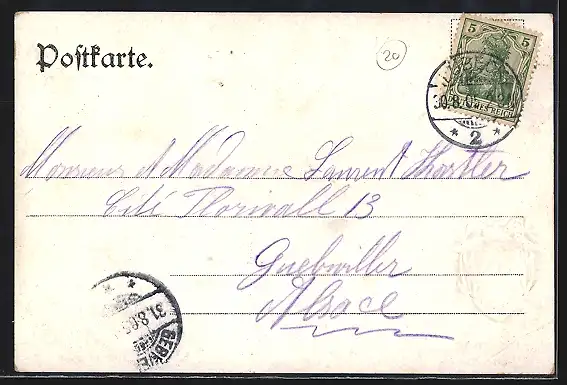 Postkarte.
20
5
30.8.0
* 2 *
Monsieur et Madame Laurent
Cité Florivall 13
Guebwiller
Alsace
31.8.05
GEBWEI